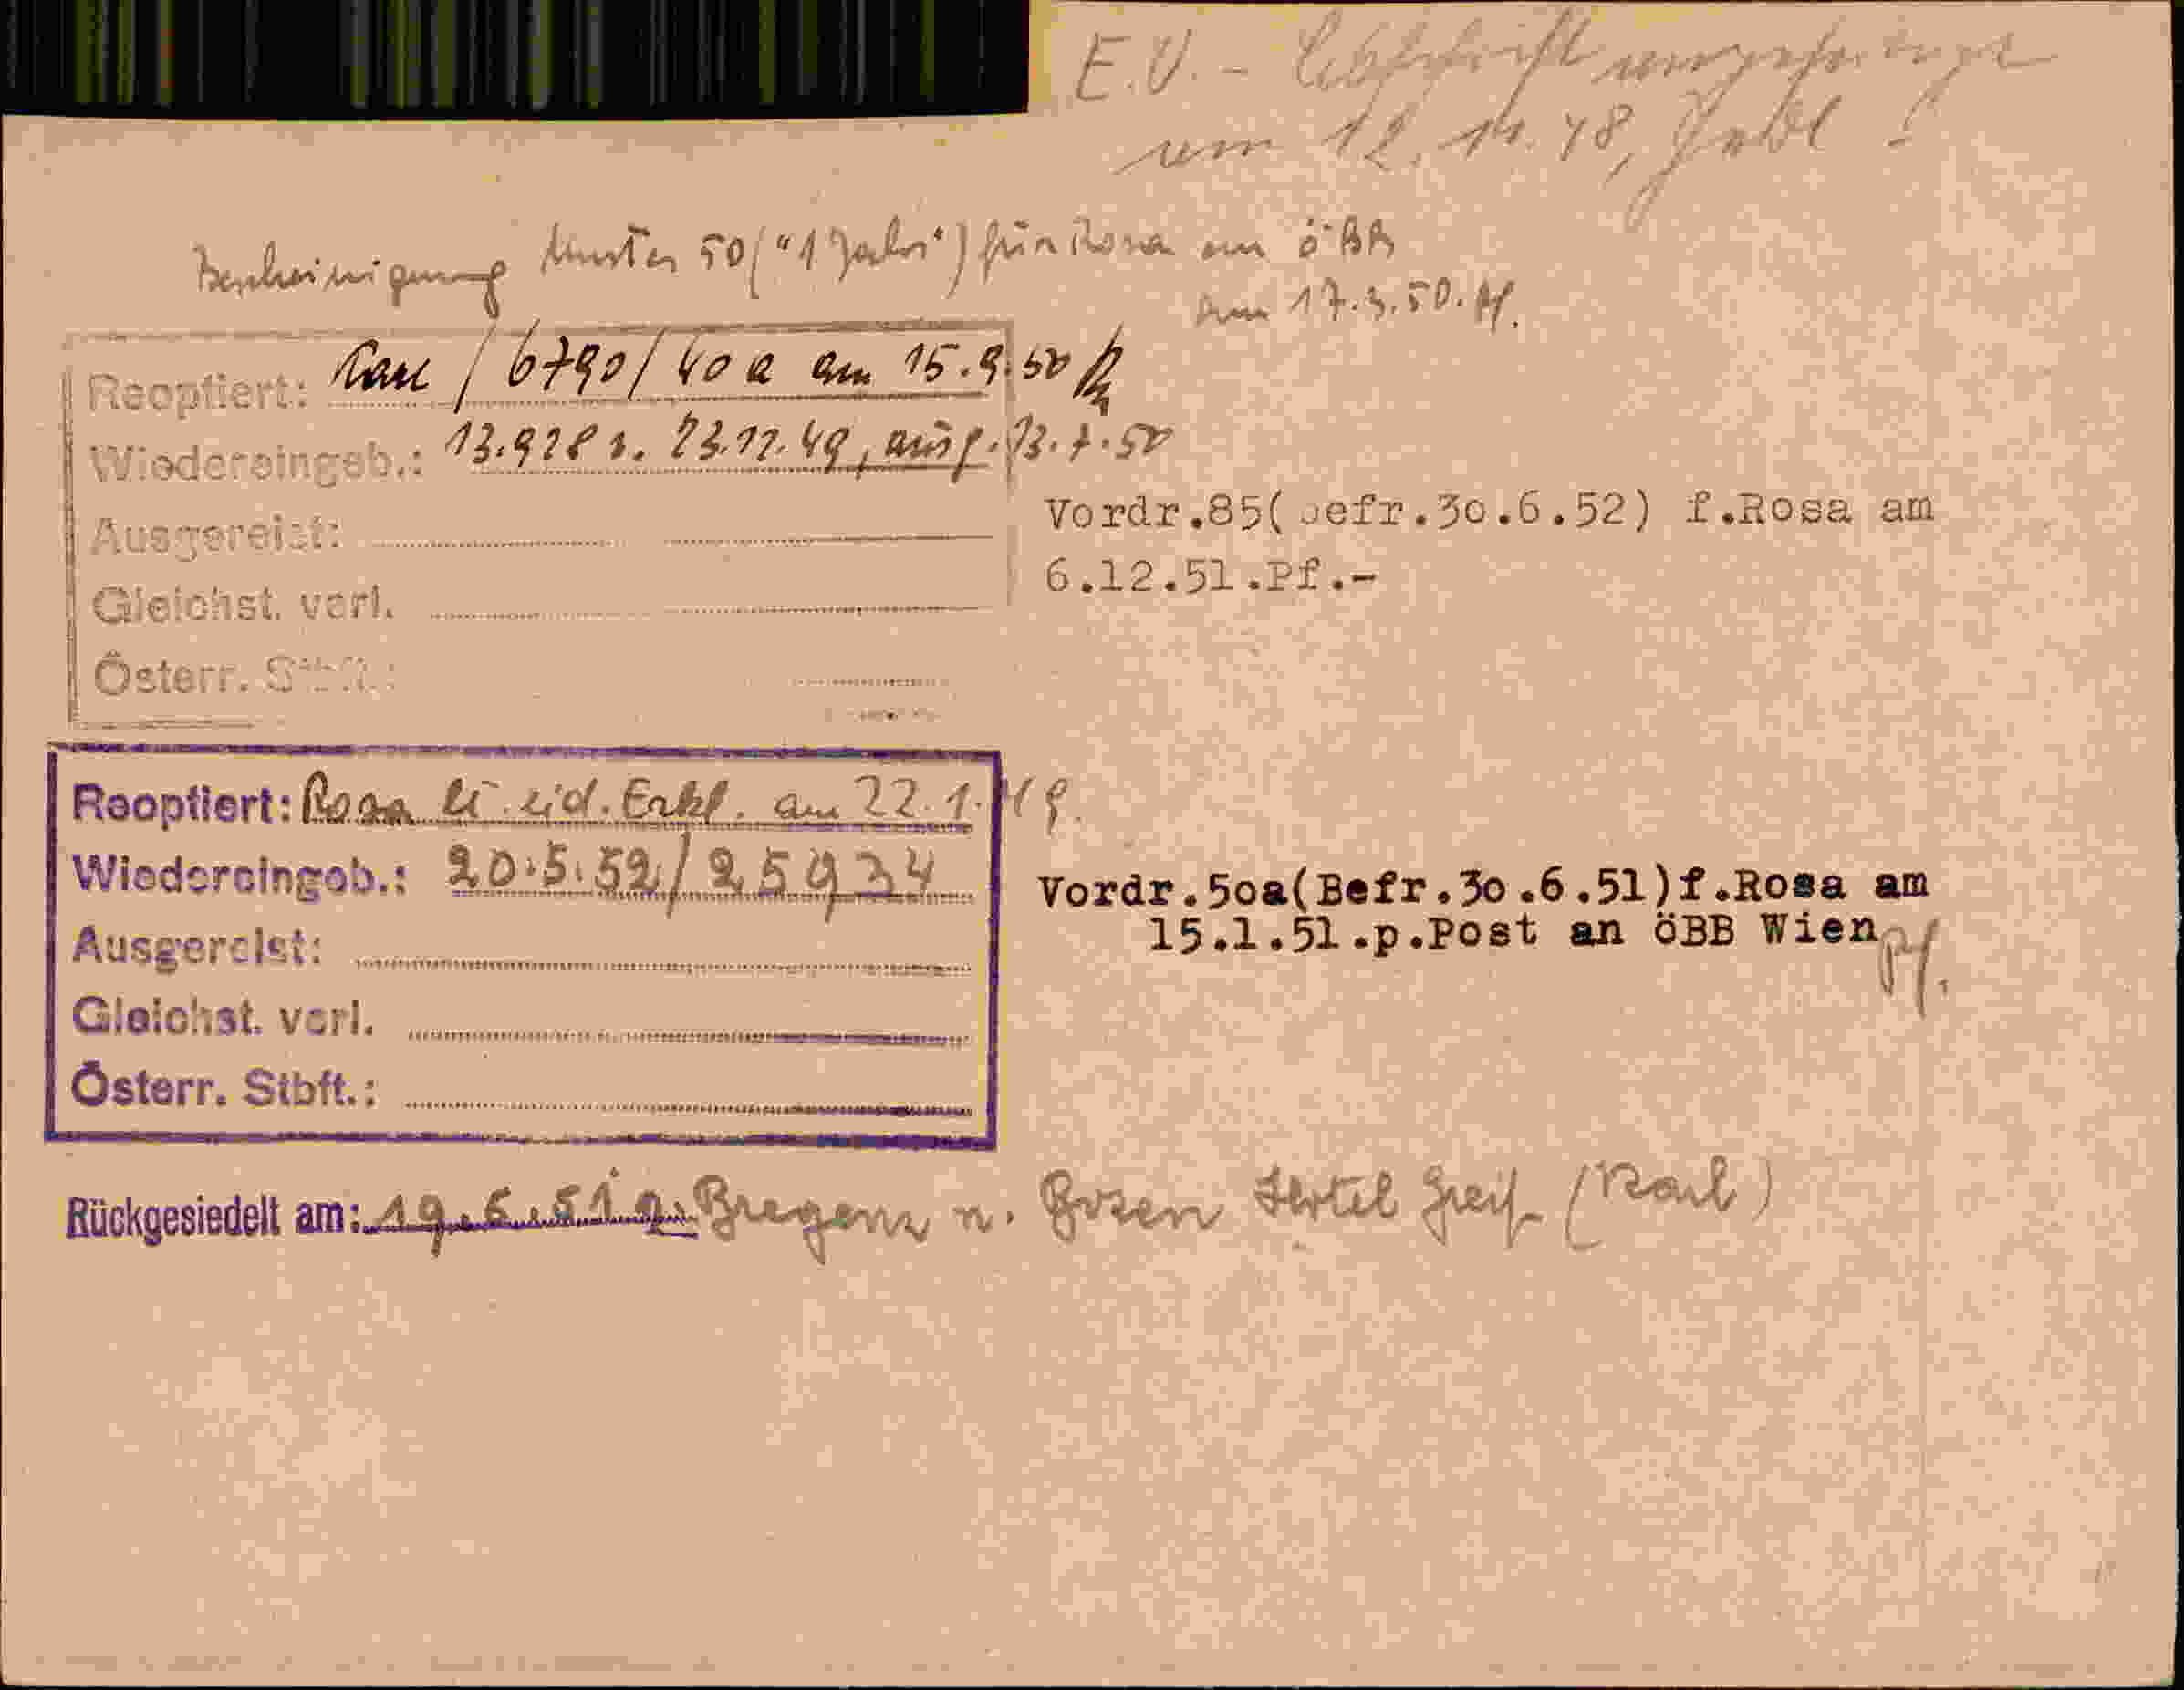 E.V. - Abschrift
am 12. 11. 48,
Bescheinigung Muster 50 ("1 Jahr") für Rosa an ÖBB
am 17.3.50. Pf.
Reoptiert: Karl / 6790/40a am 15.9.50
Wiedereingeb.: 13.928 v. 23.11.49, ausg. 13.7.50
Ausgereist:
Gleichst. verl.
Österr. Stbft.:
Vordr.85(Befr.30.6.52) f.Rosa am
6.12.51.Pf.-
Reoptiert: Rosa lt. eid. Erkl. am 22.1.49.
Wiedereingeb.: 20.5.52/25934
Ausgereist:
Gleichst. verl.
Österr. Stbft.:
Vordr.50a(Befr.30.6.51)f.Rosa am
15.1.51.p.Post an öBB Wien Pf.
Rückgesiedelt am: 19.6.51 Bregenz n. Bozen Hotel Greif (Karl)